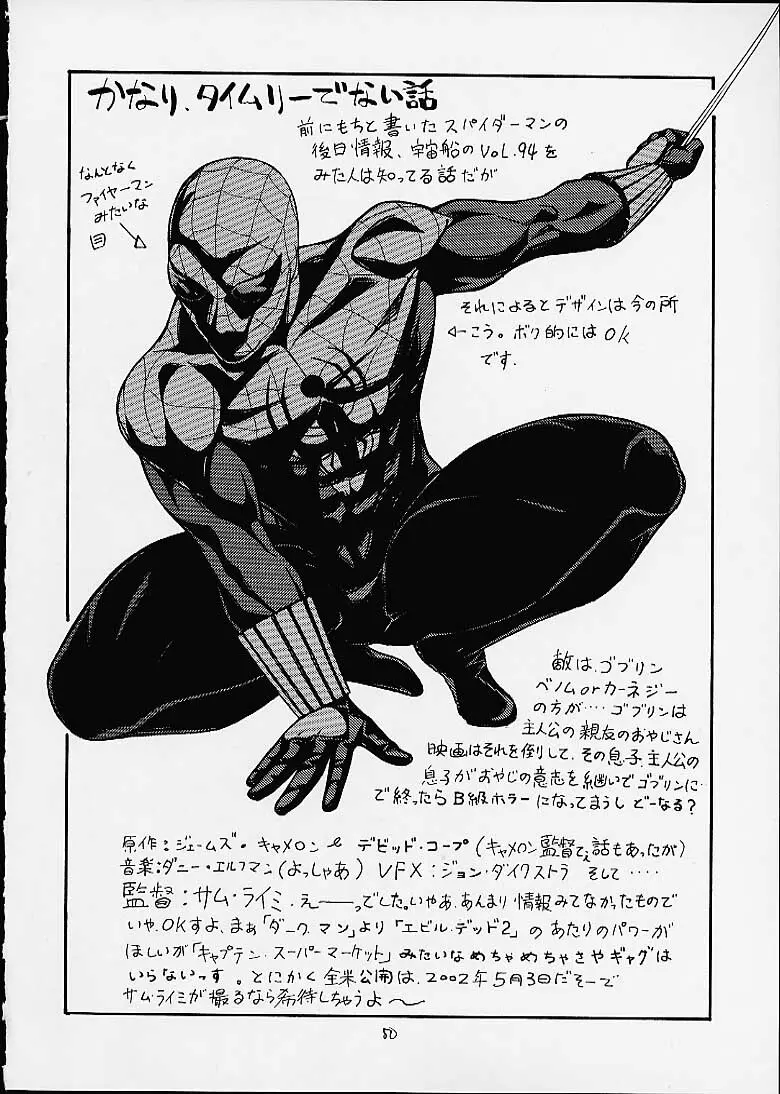 かなり、タイムリーでない話
前にもちと書いたスパイダーマンの
後日情報、宇宙船のVOL.94を
みた人は知ってる話だが
なんとなく
ファイヤーマン
みたいな
目
それによるとデザインは今の所
←こう。ボク的にはOK
です.
敵は、ゴブリン
ベノムorカーネジー
の方が‥‥ゴブリンは
主人公の親友のおやじさん
映画はそれを倒して、その息子、主人公の
息子がおやじの意志を継いでゴブリンに‥
で終ったらB級ホラーになってまうし どーなる?
原作:ジェームズ・キャメロンとデビッド・コープ(キャメロン監督てぇ話もあったが)
音楽:ダニー・エルフマン(よっしゃあ) VFX:ジョン・ダイクストラ そして‥‥‥
監督:サム・ライミ.え──っでした。いやぁ、あんまり情報みてなかったもので
いや、OKすよ、まぁ「ダークマン」より「エビル・デッド2」のあたりのパワーが
ほしいが「キャプテン・スーパーマーケット」みたいなめちゃめちゃさやギャグは
いらないっす。とにかく全米公開は、2002年5月3日だそーで
サム・ライミが撮るなら希待しちゃうよ〜
50